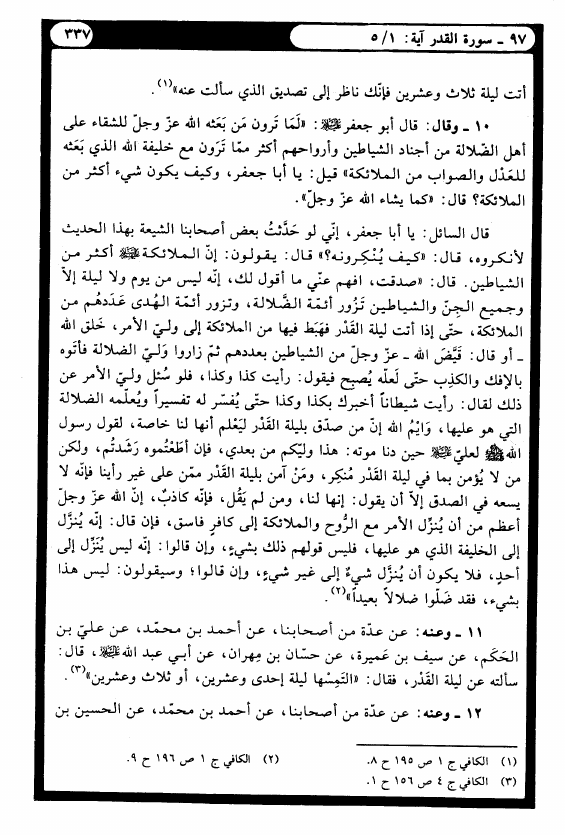 ٩٧ ـ سورة القدر آية: ١/ ٥
٣٣٧
أتت ليلة ثلاث وعشرين فإنّك ناظر إلى تصديق الذي سألت عنه»(١).
١٠ ـ وقال: قال أبو جعفر عليه السلام: «لَمَا تَرون مَن بَعَثه الله عزّ وجلّ للشقاء على
أهل الضّلالة من أجناد الشياطين وأرواحهم أكثر ممّا تَرَون مع خليفة الله الذي بَعَثه
للعَدْل والصواب من الملائكة» قيل: يا أبا جعفر، وكيف يكون شيء أكثر من
الملائكة؟ قال: «كما يشاء الله عزّ وجلّ».
قال السائل: يا أبا جعفر، إنّي لو حَدَّثتُ بعض أصحابنا الشيعة بهذا الحديث
لأنكروه، قال: «كيف يُنْكِرونه؟» قال: يقولون: إنّ الملائكة عليهم السلام أكثر من
الشياطين. قال: «صدقت، افهم عنّي ما أقول لك، إنّه ليس من يوم ولا ليلة إلاّ
وجميع الجنّ والشياطين تَزُور أئمة الضَّلالة، وتزور أئمّة الهُدى عَدَدهُم من
الملائكة، حتّى إذا أتت ليلة القَدْر فهَبَط فيها من الملائكة إلى وليّ الأمر، خَلق الله
ـ أو قال: قَيَّضَ الله ـ عزّ وجلّ من الشياطين بعددهم ثمّ زاروا وَليّ الضلالة فأتَوه
بالإفك والكذِب حتّى لعلّه يُصبح فيقول: رأيت كذا وكذا، فلو سُئل وليّ الأمر عن
ذلك لقال: رأيت شيطاناً أخبرك بكذا وكذا حتّى يُفسّر له تفسيراً ويُعلّمه الضلالة
التي هو عليها، وَايْمُ الله إنّ من صدّق بليلة القَدْر ليَعْلم أنها لنا خاصة، لقول رسول
الله صلى الله عليه وآله لعليّ عليه السلام حين دنا موته: هذا وليّكم من بعدي، فإن أطَعْتُموه رَشَدتُم، ولكن
من لا يُؤمن بما في ليلة القَدْر مُنكِر، ومَنْ آمن بليلة القَدْر ممّن على غير رأينا فإنّه لا
يسعه في الصدق إلاّ أن يقول: إنها لنا، ومن لم يَقُل، فإنّه كاذبٌ، إنّ الله عزّ وجلّ
أعظم من أن يُنزّل الأمر مع الرُّوح والملائكة إلى كافرٍ فاسق، فإن قال: إنّه يُنزّل
إلى الخليفة الذي هو عليها، فليس قولهم ذلك بشيءٍ، وإن قالوا: إنّه ليس يُنَزَّل إلى
أحدٍ، فلا يكون أن يُنزّل شيءٌ إلى غير شيءٍ، وإن قالوا؛ وسيقولون: ليس هذا
بشيء، فقد ضَلّوا ضلالاً بعيداً»(٢).
١١ ـ وعنه: عن عدّة من أصحابنا، عن أحمد بن محمّد، عن عليّ بن
الحَكَم، عن سيف بن عَميرة، عن حسّان بن مِهران، عن أبي عبد الله عليه السلام، قال:
سألته عن ليلة القَدْر، فقال: «التَمِسْها ليلة إحدى وعشرين، أو ثلاث وعشرين»(٣).
١٢ ـ وعنه: عن عدّة من أصحابنا، عن أحمد بن محمّد، عن الحسين بن
(١) الكافي ج ١ ص ١٩٥ ح ٨.
(٢) الكافي ج ١ ص ١٩٦ ح ٩.
(٣) الكافي ج ٤ ص ١٥٦ ح ١.